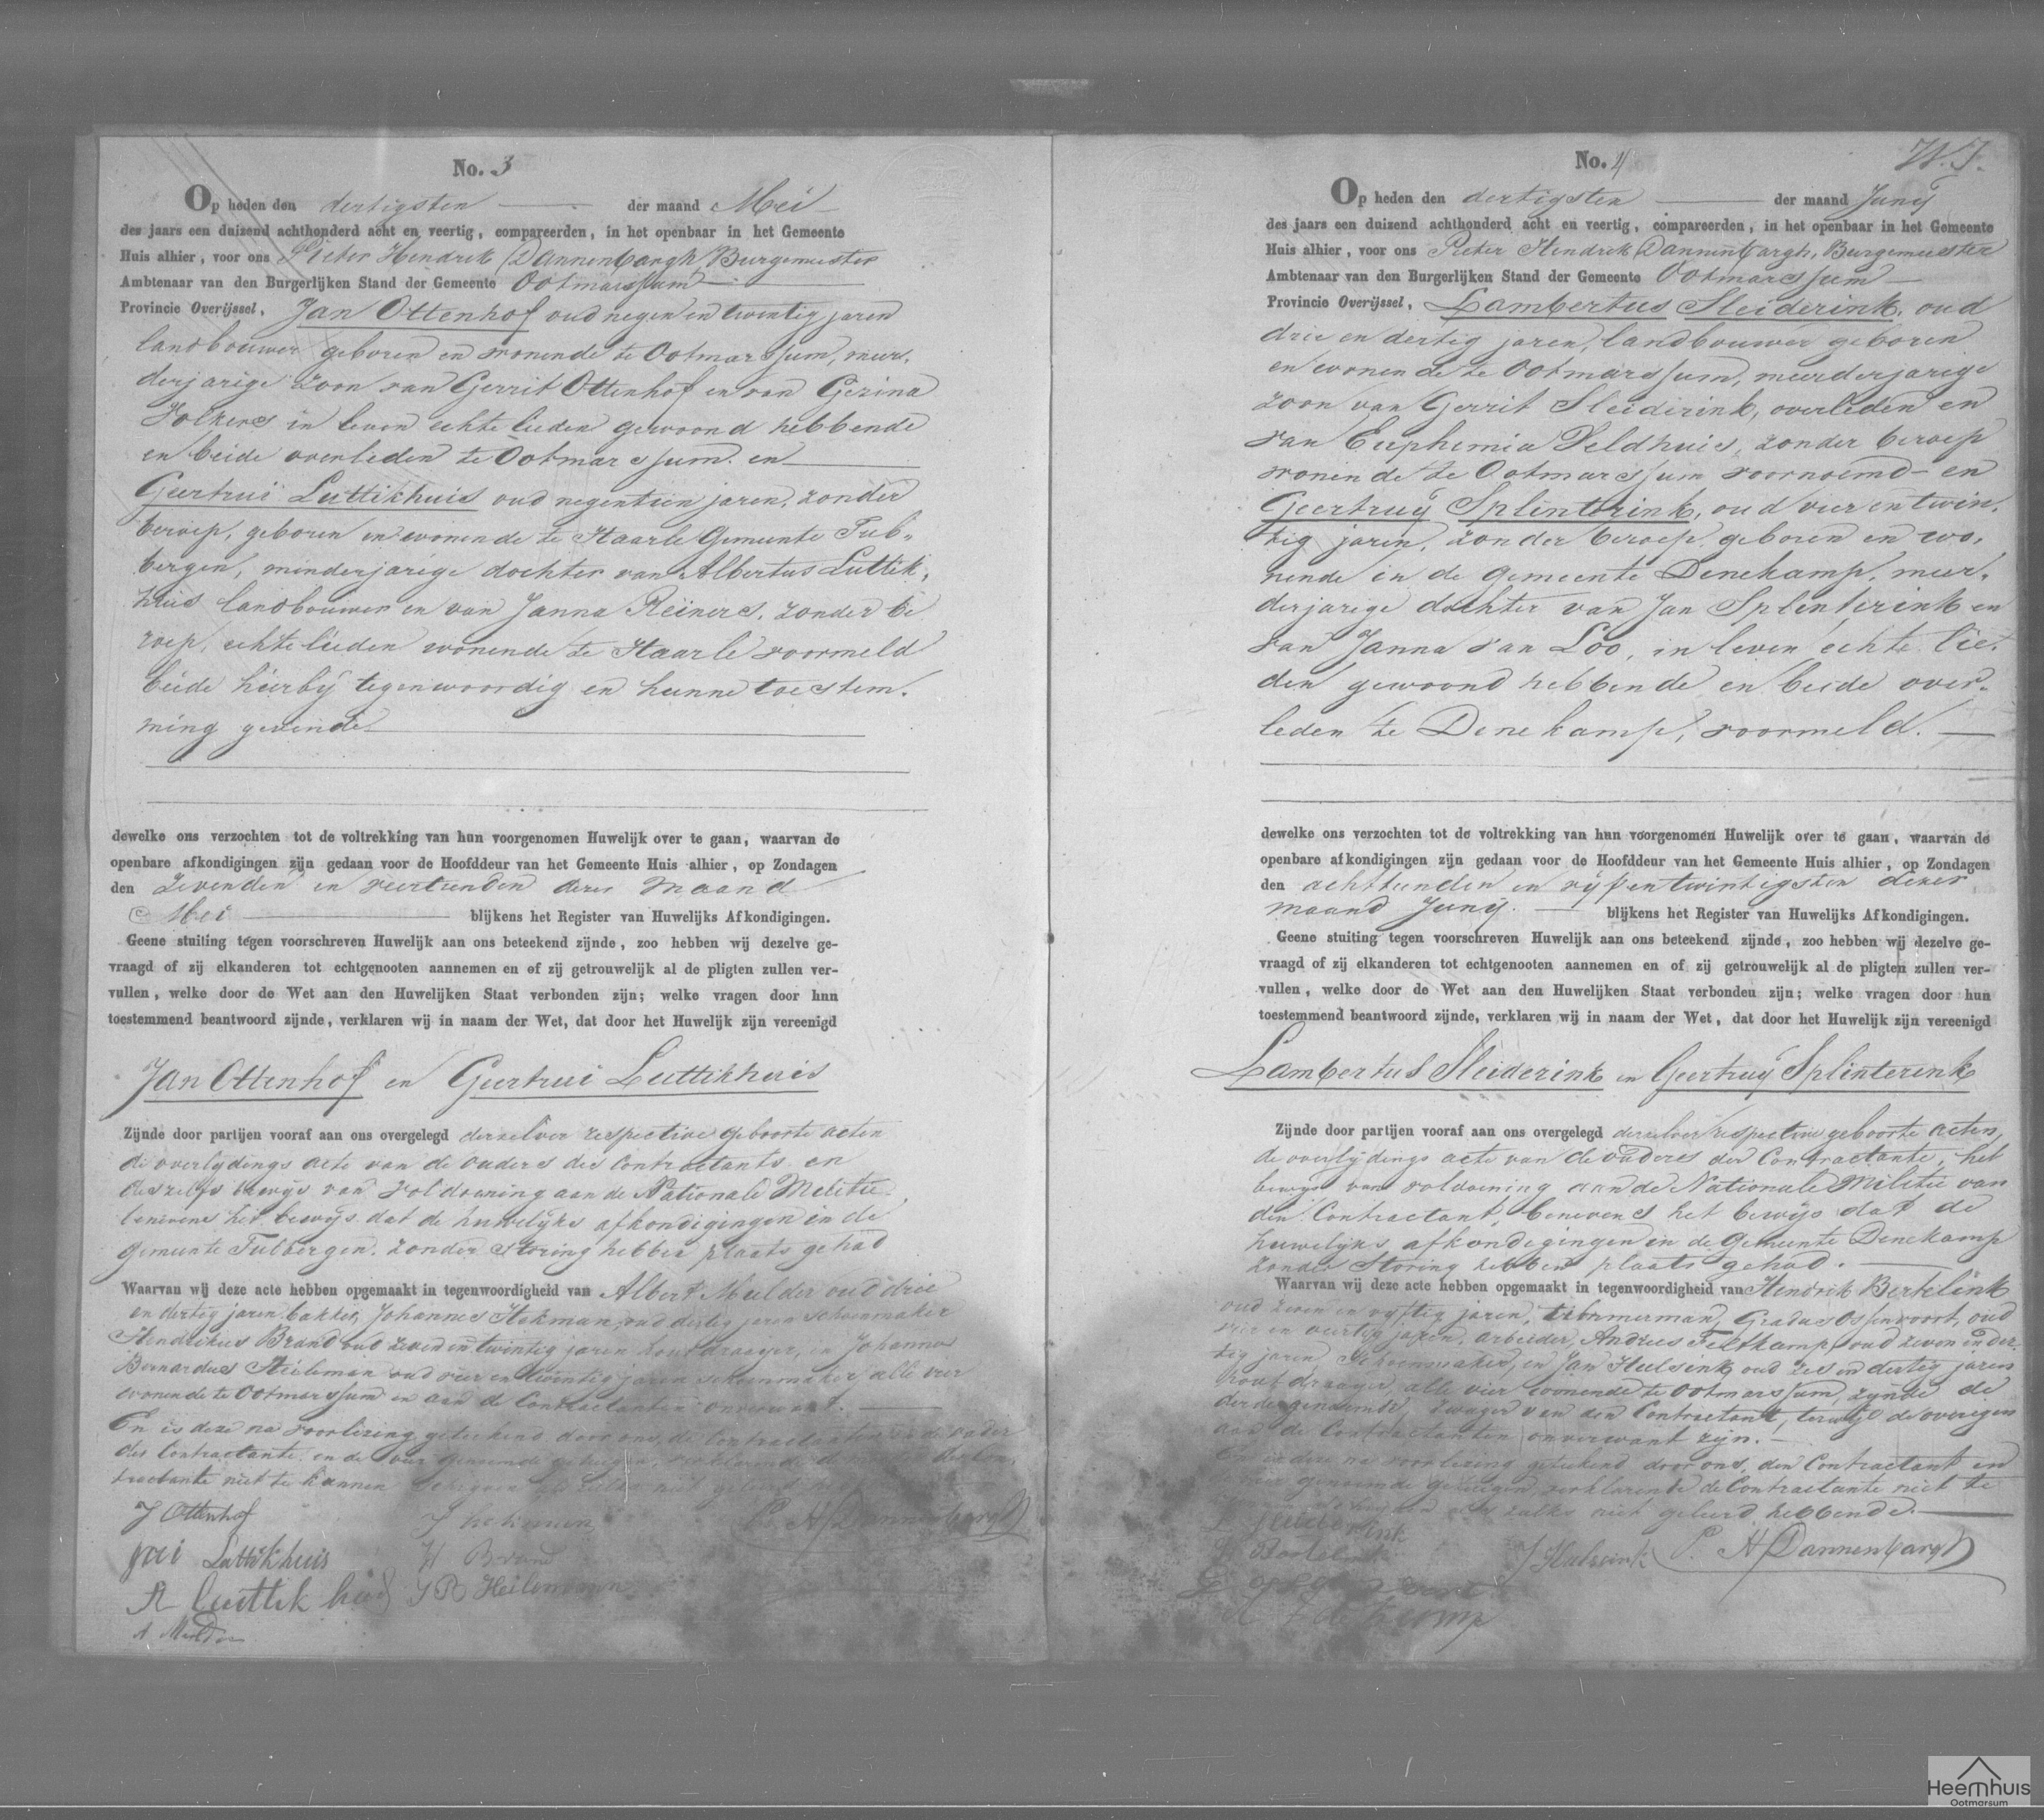 No. 3
Op heden den dertigsten der maand Mei
des jaars een duizend achthonderd acht en veertig, compareerden, in het openbaar in het Gemeente
Huis alhier, voor ons Pieter Hendrik Dannenbargh, Burgemeester
Ambtenaar van den Burgerlijken Stand der Gemeente Ootmarssum
Provincie Overijssel, Jan Ottenhof oud negen en twintig jaren
landbouwer geboren en wonende te Ootmarssum, meer-
derjarige zoon van Gerrit Ottenhof en van Gezina
in leven echtelieden gewoond hebbende
en beide overleden te Ootmarssum. en
Geertrui Luttikhuis oud negentien jaren, zonder
beroep, geboren en wonende te Haarle Gemeente Tub-
bergen, minderjarige dochter van Albertus Luttik-
huis landbouwer en van Janna Reiners, zonder be
roep, echtelieden wonende te Haarle voormeld
beide hierbij tegenwoordig en hunne toestem-
ming gevende
dewelke ons verzochten tot de voltrekking van hun voorgenomen Huwelijk over te gaan, waarvan de
openbare afkondigingen zijn gedaan voor de Hoofddeur van het Gemeente Huis alhier, op Zondagen
den Zevenden en veertienden dezer maand
Mei blijkens het Register van Huwelijks Afkondigingen.
Geene stuiting tegen voorschreven Huwelijk aan ons beteekend zijnde, zoo hebben wij dezelve ge-
vraagd of zij elkanderen tot echtgenooten aannemen en of zij getrouwelijk al de pligten zullen ver-
vullen, welke door de Wet aan den Huwelijken Staat verbonden zijn; welke vragen door hnn
toestemmend beantwoord zijnde, verklaren wij in naam der Wet, dat door het Huwelijk zijn vereenigd
Jan Ottenhof en Geertrui Luttikhuis
Zijnde door partijen vooraf aan ons overgelegd derzelver respective geboorte acten
de overlydings acte van de ouders des Contractants en
deszelfs bewijs van voldoening aan de Nationale Melitie
benevens het bewijs dat de huwelijks afkondigingen in de
gemeente Tubbergen zonder storing hebben plaats gehad
Waarvan wij deze acte hebben opgemaakt in tegenwoordigheid van Albert Mulder oud drie
en dertig jaren bakker, Johannes Hekman, oud dertig jaren schoenmaker
Hendrikus Brand oud zeven en twintig jaren houtdraayer, en Johannes
Bernardus Heileman oud vier en twintig jaren schoenmaker alle vier
wonende te Ootmarssum en aan de Contractanten onverwant.
En is deze na voorlezing geteekend door ons, de Contractanten de vader
der Contractante, en de vier genoemde getuigen, verklarende de moeder der Con-
tractante niet te kunnen schrijven
J Ottenhof
J hekman
P. H Dannenbargh
Luttikhuis
H Brand
A Luttikhuis
J B Heilemann
A Mulder
No. 4
W.J.
Op heden den dertigsten der maand Junij
des jaars een duizend achthonderd acht en veertig, compareerden, in het openbaar in het Gemeente
Huis alhier, voor ons Pieter Hendrik Dannenbargh, Burgemeester
Ambtenaar van den Burgerlijken Stand der Gemeente Ootmarssum
Provincie Overijssel, Lambertus Sleiderink, oud
drie en dertig jaren, landbouwer geboren
en wonende te Ootmarssum, meerderjarige
zoon van Gerrit Sleiderink, overleden en
van Euphemia Veldhuis, zonder beroep
wonende te Ootmarssum voornoemd en
Geertruij Splinterink, oud vier en twin-
tig jaren, zonder beroep, geboren en wo-
nende in de gemeente Denekamp, meer-
derjarige dochter van Jan Splinterink en
van Janna van Loo, in leven echte lie-
den gewoond hebbende en beide over-
leden te Denekamp, voormeld.
dewelke ons verzochten tot de voltrekking van hun voorgenomen Huwelijk over te gaan, waarvan de
openbare afkondigingen zijn gedaan voor de Hoofddeur van het Gemeente Huis alhier, op Zondagen
den achttienden en vijf en twintigsten dezer
maand Junij. blijkens het Register van Huwelijks Afkondigingen.
Geene stuiting tegen voorschreven Huwelijk aan ons beteekend zijnde, zoo hebben wij dezelve ge-
vraagd of zij elkanderen tot echtgenooten aannemen en of zij getrouwelijk al de pligten zullen ver-
vullen, welke door de Wet aan den Huwelijken Staat verbonden zijn; welke vragen door hun
toestemmend beantwoord zijnde, verklaren wij in naam der Wet, dat door het Huwelijk zijn vereenigd
Lambertus Sleiderink en Geertruij Splinterink
Zijnde door partijen vooraf aan ons overgelegd derzelver respective geboorte acten,
de overlijdings acte van de ouders der Contractante, het
bewijs van voldoening aan de Nationale Militie van
den Contractant, benevens het bewijs dat de
huwelijks afkondigingen in de gemeente Denekamp
zonder storing hebben plaats gehad.
Waarvan wij deze acte hebben opgemaakt in tegenwoordigheid van Hendrik Bertelink
oud zeven en vijftig jaren, timmerman, Gradus Ossenvoort, oud
vier en veertig jaren, arbeider, Andries Feltkamp, oud zeven en der-
tig jaren, Schoenmaker, en Jan Hulsink, oud zes en dertig jaren
houtdraayer, alle vier wonende te Ootmarssum, zijnde de
derde genoemde zwager van den Contractant, terwijl de overigen
aan de Contractanten onverwant zijn.
En is deze na voorlezing geteekend door ons, den Contractant en
vier genoemde getuigen, verklarende de Contractante niet te
zulks niet geleerd hebbende.
L Sleiderink
J Hulsink
P. H Dannenbargh
Heemhuis
Ootmarsum